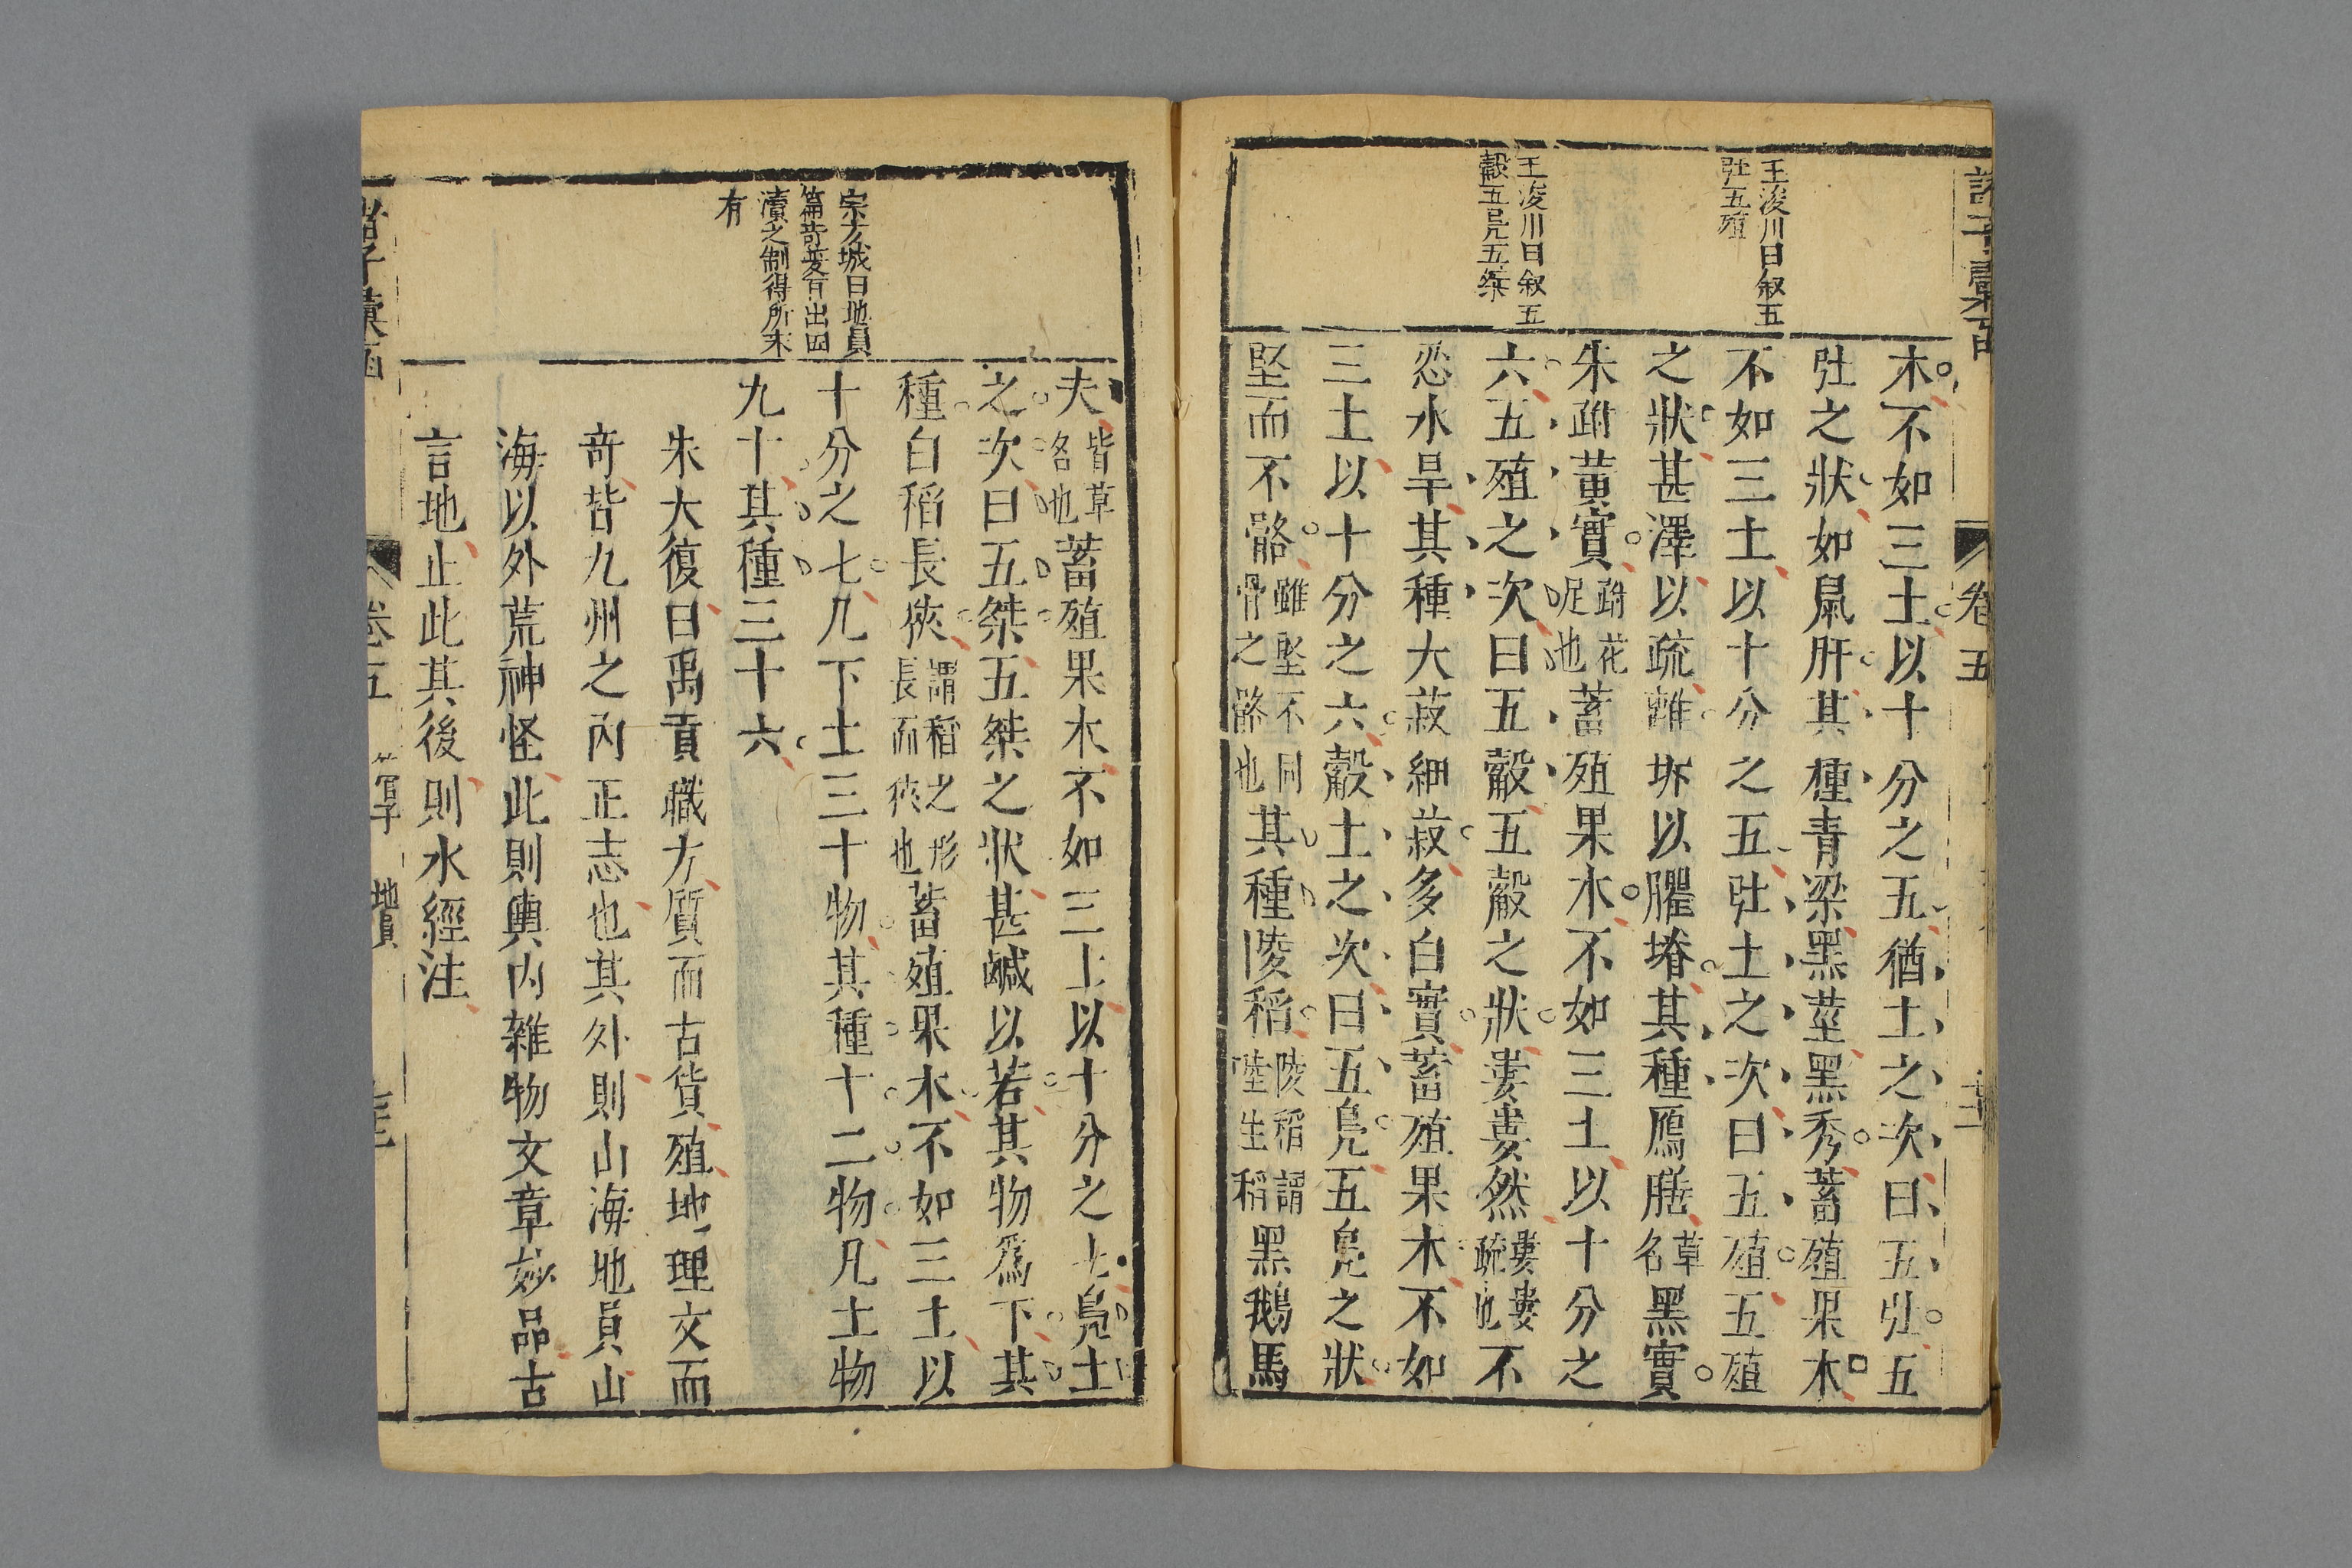 諸子彙函
卷五
王浚川曰叙五
𡉶五殖
王浚川曰叙五
觳五鳧五桀
木不如三土以十分之五猶土之次曰五𡉶五
𡉶之狀如鼠肝其種青梁黑莖黑秀蓄殖果木
不如三土以十分之五𡉶土之次曰五殖五殖
之狀甚澤以疏離坼以臞塉其種鴈膳草名黑實
朱跗黃實跗花足也蓄殖果木不如三土以十分之
六五殖之次曰五觳五觳之狀婁婁然婁婁疏也不
忍水旱其種大菽細菽多白實蓄殖果木不如
三土以十分之六觳土之次曰五鳧五鳧之狀
堅而不骼雖堅不同骨之骼也其種陵稻陵稻謂陸生稻黑鵝馬
宗方城曰地員
篇奇菱有出四
瀆之制得所未
有
夫皆草名也蓄殖果木不如三土以十分之七鳧土
之次曰五桀五桀之狀甚鹹以若其物爲下其
種白稻長狹謂稻之形長而狹也蓄殖果木不如三土以
十分之七凡下土三十物其種十二物凡土物
九十其種三十六
朱大復曰禹貢職方質而古貨殖地理文而
奇皆九州之內正志也其外則山海地員山
海以外荒神怪此則輿內雜物文章妙品古
言地止此其後則水經注
卷五
管子
地員